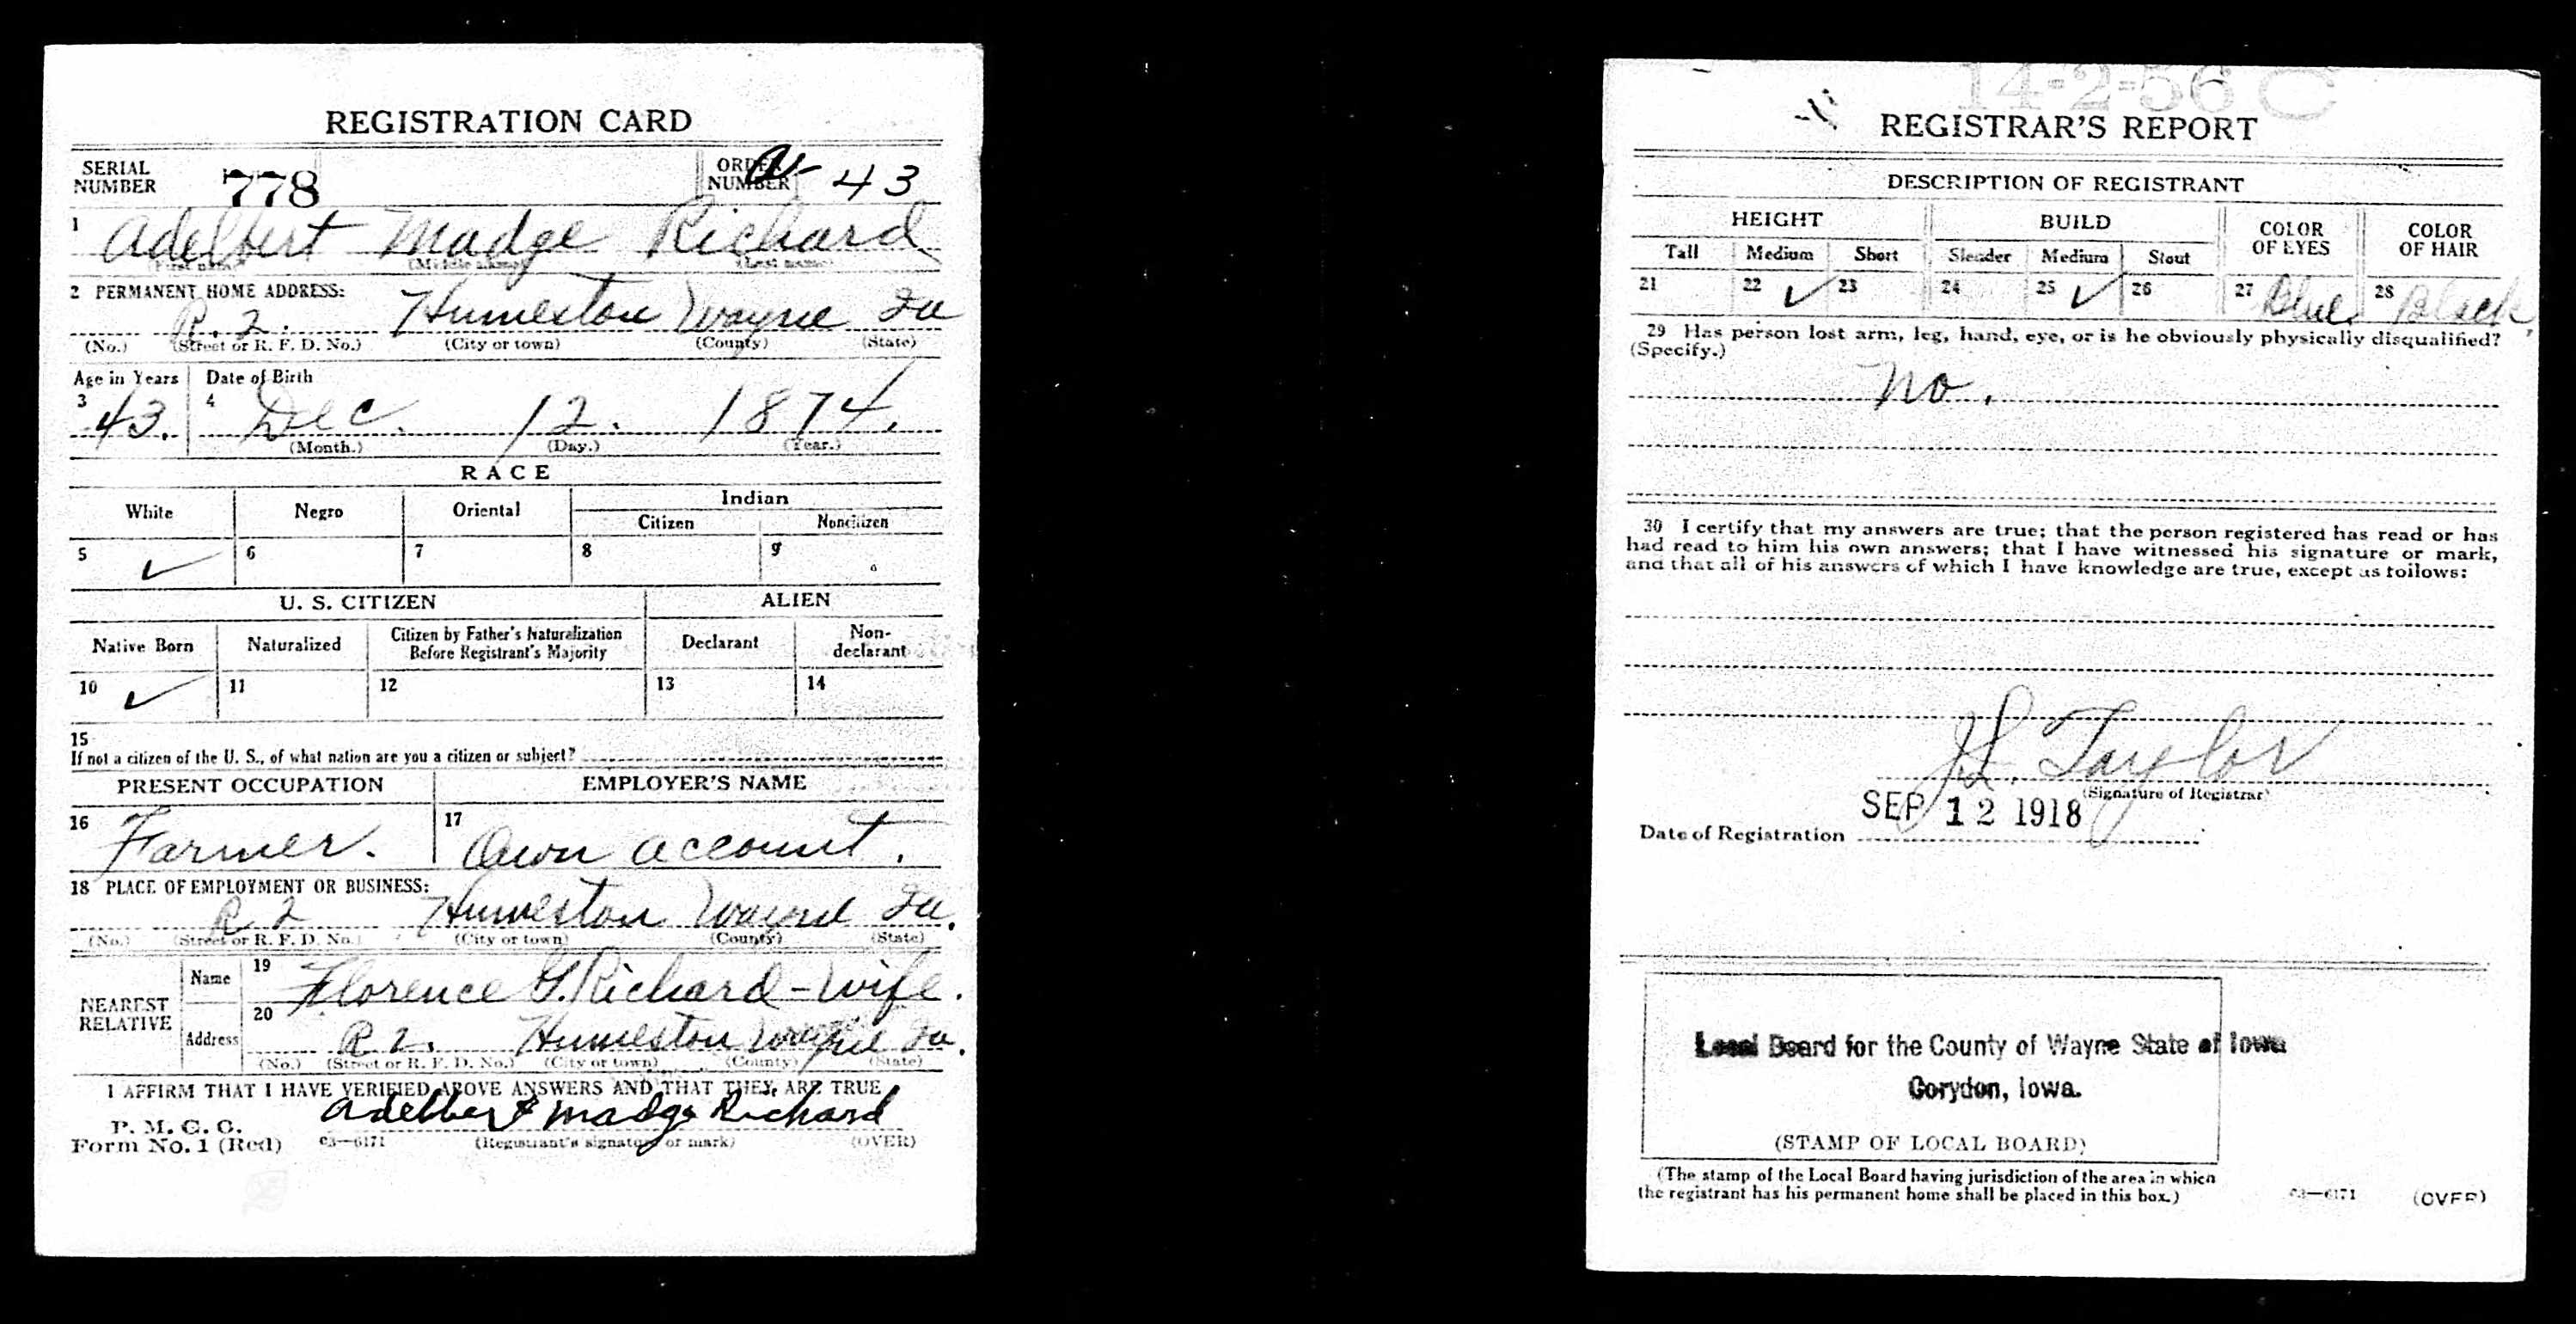 REGISTRATION CARD
SERIAL NUMBER 778 ORDER NUMBER A 43
1 Adelbert Madge Richard
(First name) (Middle name) (Last name)
2 PERMANENT HOME ADDRESS:
R. 2. Humeston Wayne Ia
(No.) (Street or R. F. D. No.) (City or town) (County) (State)
Age in Years Date of Birth
3 43. 4 Dec. 12. 1874.
(Month.) (Day.) (Year.)
RACE
White Negro Oriental Indian
Citizen Noncitizen
5 ✓ 6 7 8 9
U. S. CITIZEN ALIEN
Native Born Naturalized Citizen by Father's Naturalization Before Registrant's Majority Declarant Non-declarant
10 ✓ 11 12 13 14
15
If not a citizen of the U. S., of what nation are you a citizen or subject?
PRESENT OCCUPATION EMPLOYER'S NAME
16 Farmer. 17 Own account.
18 PLACE OF EMPLOYMENT OR BUSINESS:
R 2 Humeston Wayne Ia.
(No.) (Street or R. F. D. No.) (City or town) (County) (State)
NEAREST RELATIVE
Name 19 Florence G. Richard - wife.
Address 20 R 2. Humeston Wayne Ia.
(No.) (Street or R. F. D. No.) (City or town) (County) (State)
I AFFIRM THAT I HAVE VERIFIED ABOVE ANSWERS AND THAT THEY ARE TRUE
P. M. G. O.
Form No. 1 (Red) c3—6171 Adelbert Madge Richard
(Registrant's signature or mark) (OVER)
14-2-56 C
REGISTRAR'S REPORT
DESCRIPTION OF REGISTRANT
HEIGHT BUILD COLOR OF EYES COLOR OF HAIR
Tall Medium Short Slender Medium Stout
21 22 ✓ 23 24 25 ✓ 26 27 Blue 28 Black
29 Has person lost arm, leg, hand, eye, or is he obviously physically disqualified?
(Specify.)
No.
30 I certify that my answers are true; that the person registered has read or has
had read to him his own answers; that I have witnessed his signature or mark,
and that all of his answers of which I have knowledge are true, except as follows:
Taylor
(Signature of Registrar)
Date of Registration SEP 12 1918
Local Board for the County of Wayne State of Iowa
Corydon, Iowa.
(STAMP OF LOCAL BOARD)
(The stamp of the Local Board having jurisdiction of the area in which
the registrant has his permanent home shall be placed in this box.)
c3—6171 (OVER)